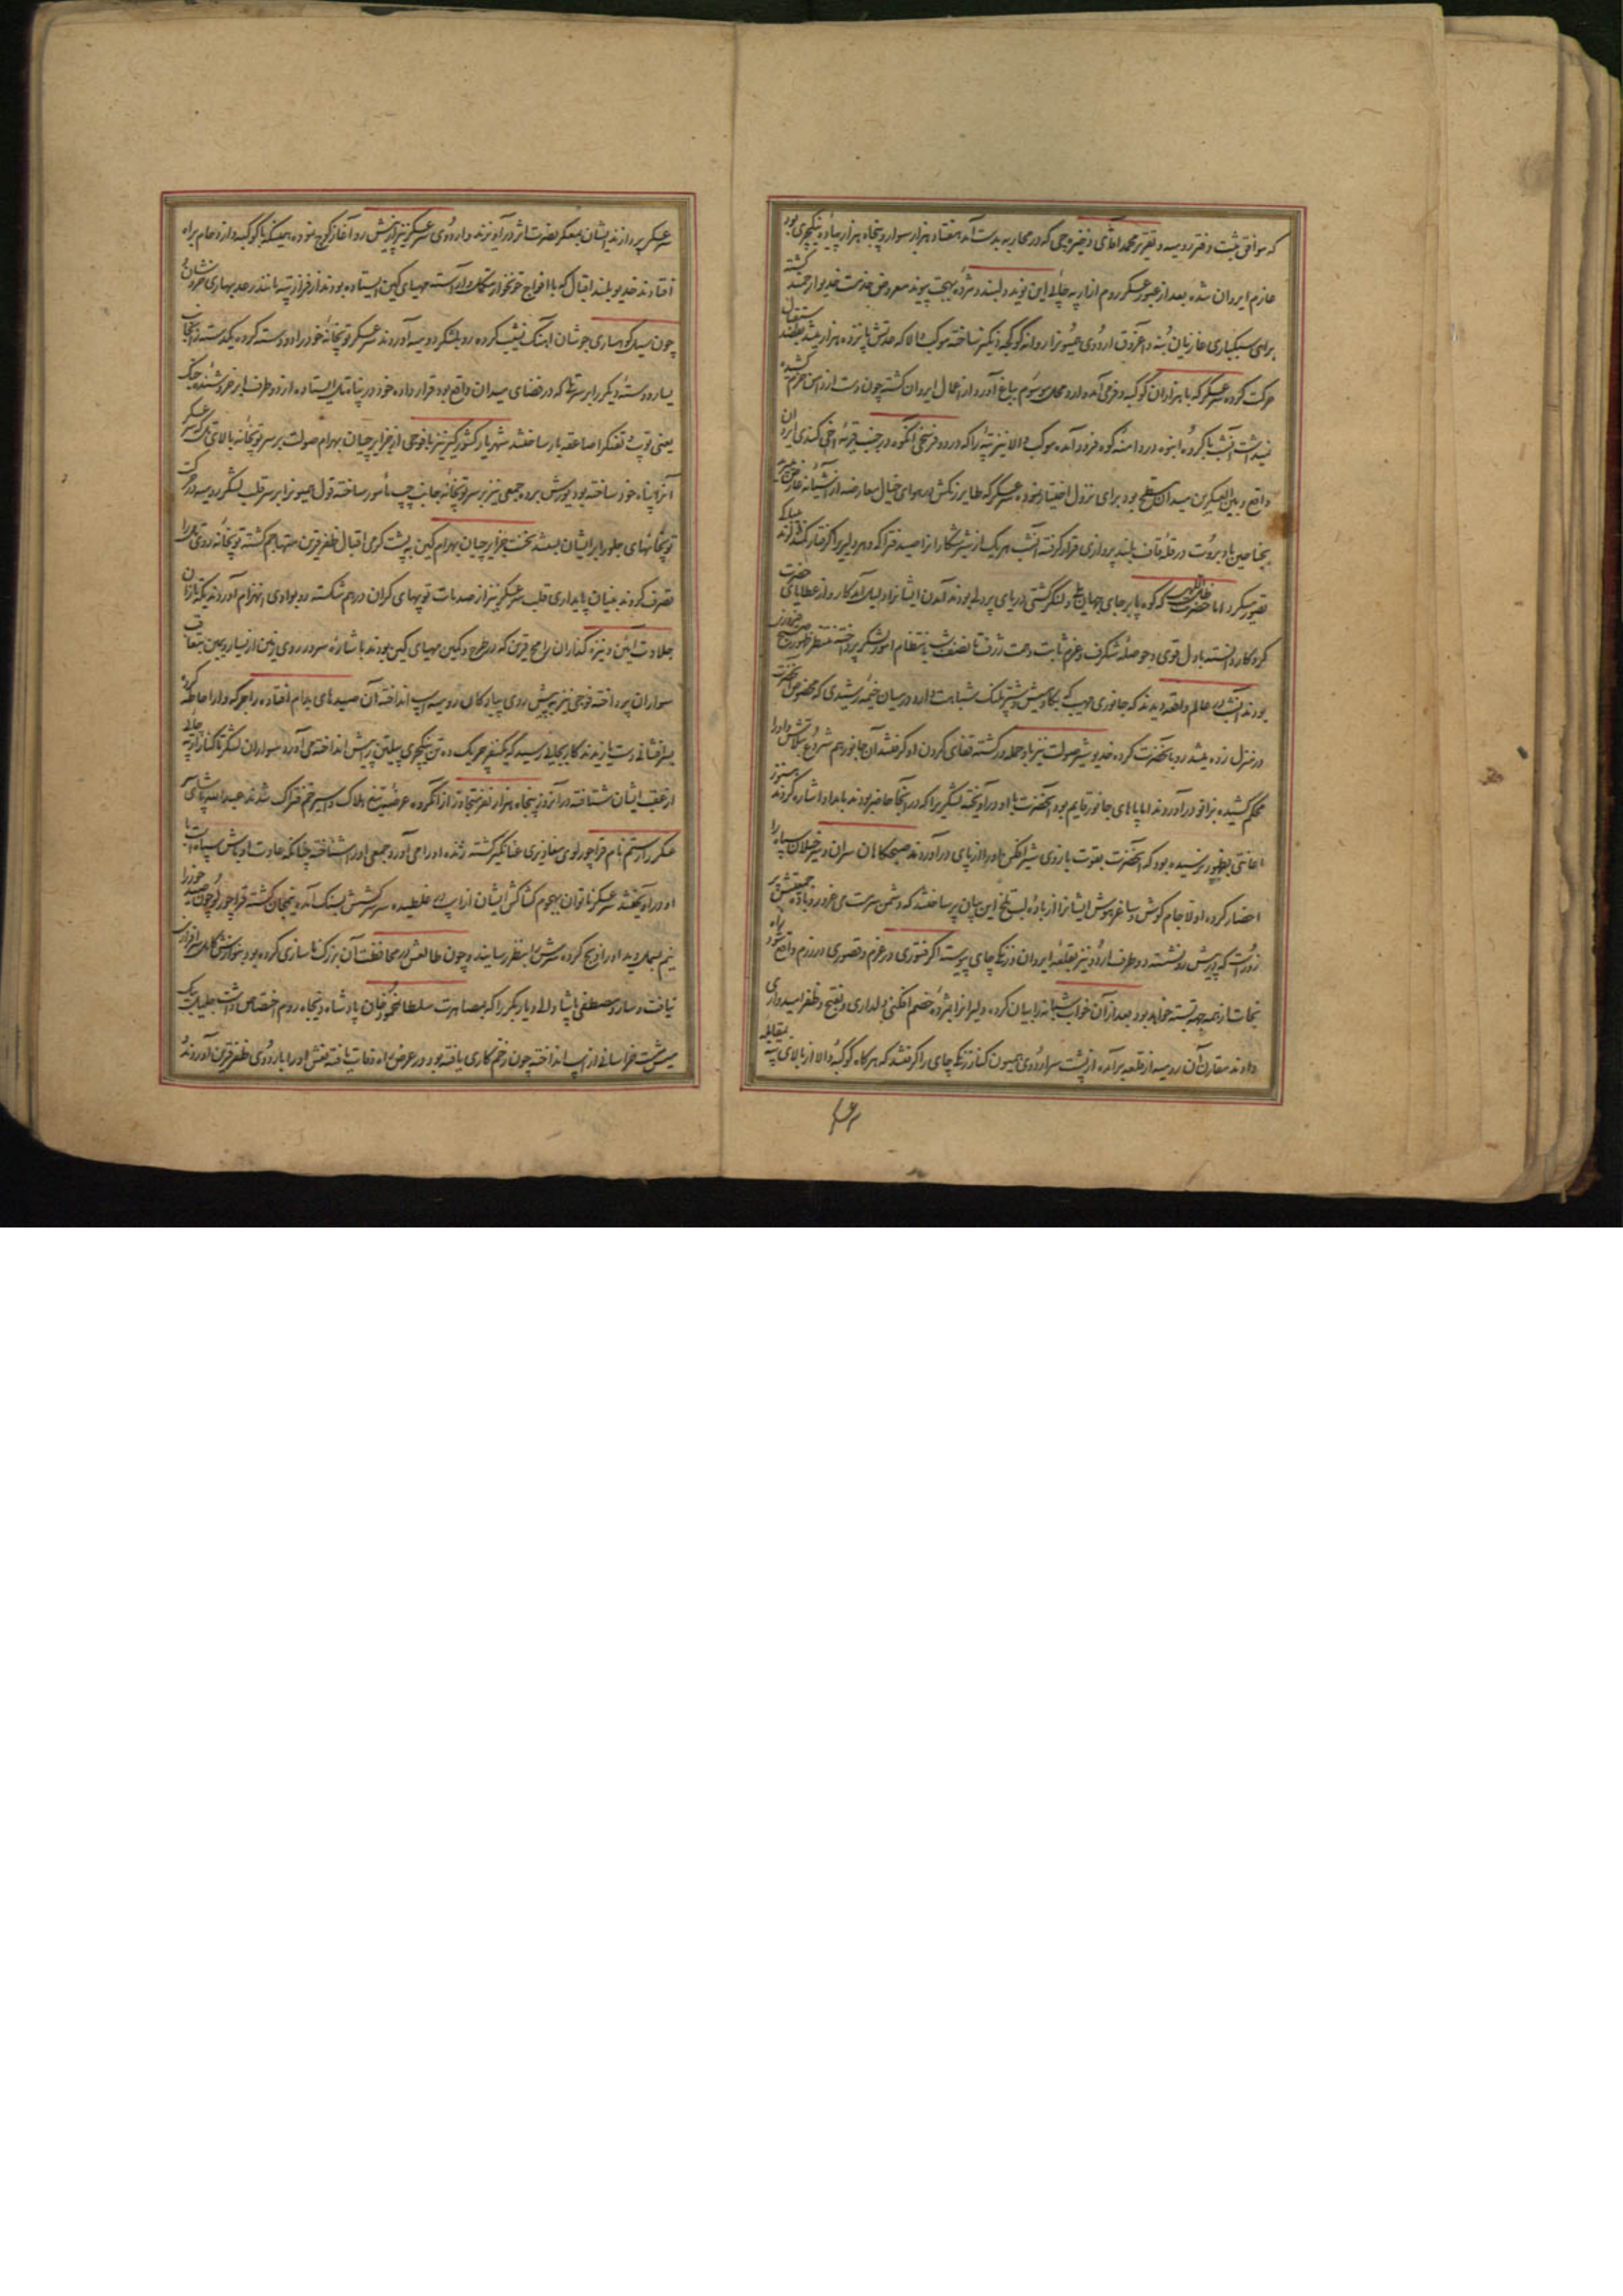 که موافق ثبت دفتر رومیه و تقریر محمد آقای ذخیره‌چی که در محاربه بدست آمد هفتاد هزار سوار و پنجاه هزار پیاده ینکچری بود
عازم ایروان شده بعد از عبور عسکر روم از ارپه چائی این نوید دلپسند و مژده بهجت پیوند معروض خدمت خدیو ارجمند گشته
برای سبکباری غازیان بنه و آغروق اردوی همیونرا روانه کوکچه دنکیز ساخته موکب والا که عدتش پانزده هزار میشد
حرکت کرده سرعسکر که با هزاران کوکبه و فر می آمد وارد محل موسوم بباغ آورد از اعمال ایروان گشته چون دست از دامن حزم کشیده
نمیداشت آنشب با گروه انبوه در دامنه کوه فرود آمده موکب والا نیز تپه را که در دو فرسخی انگوه در جنب قریه اخی کندی ایروان
واقع و بین العسکرین میدان مسطح بود برای نزول اختیار نموده سرعسکر که طایر زنکش در هوای خیال معارضه از آشیانه
بجناحین باد بروت در قله قاف بلند پروازی قرار گرفته آنشب هریک از شیر شکاران را صید فتراک و هر دلیر را گرفتار کمند
تصور میکرد اما حضرت ظل اللهی که کوه پابرجای جهان و لنگر کشتی دریای پردلی بودند آمدن ایشانرا دلیل آمد کار و از عطایای حضرت
کردگار دانسته با دل قوی و حوصله شگرف و عزم ثابت و همت ژرف تا نصف شب بانتظام امور لشکر پرداخته منتظر ظهور صبح
بودند آنشب در عالم واقعه دیدند که جانوری مهیب که بگاومیش و شتر پلنک شباهت دارد در میان خیمه رشیدی که مخصوص آنحضرت
در منزل زده میشد رو بآنحضرت کرده خدیو شیر صولت نیز باو حمله ور گشته قفای گردن او گرفتند آن جانور هم شروع بتلاش
محکم کشیده بزانو درآوردند اما پاهای جانور قایم بود آنحضرت با او درآویخته لشکریرا که در آنجا حاضر بودند بامداد اشاره کردند هنوز
اعانتی بظهور نرسیده بود که آنحضرت بقوت بازوی شیر افکن او را از پای درآوردند صبحگاهان سران و سرخیلان سپاه را
احضار کرده اولا جام گوش و ساغر هوش ایشانرا از باده لب تلخ این بیان پر ساختند که دشمن سرمست می غرور و زیاده
زور است که یورش رو نشسته دو طرف اردو نیز بقلعه ایروان و زنکی چای پیوسته اگر فتوری در عزم و قصوری در رزم واقع شود راه
نجات از همه جهة بسته خواهد بود بعد از آن خواب شبانه را بیان کرده دلیرانرا بمژده خصم افکنی دلداری و بفتح و ظفر امیدواری
دادند مقارن آن رومیه از قلعه برآمده از پشت سر اردوی همیون کنار زنکی چای را گرفتند که هرگاه کوکبه والا از بالای تپه بمقابله
سرعسکر پردازند ایشان بمعسکر نصرت اثر درآویزند و اردوی سرعسکر نیز از پیش رو آغاز کوچ نموده همینکه با کوکبه و ازدحام براه
افتادند خدیو بلند اقبال که با افواج خونخوار مکمل و آراسته مهیای کین ایستاده بودند از فراز تپه مانند رعد بهاری خروشان
چون سیل کوهساری جوشان آهنک نشیب کرده رو بلشکر رومیه آوردند سرعسکر توپخانه خود را دو دسته کرده یکدسته را بجانب
یسار و دسته دیگر را بر سر تلی که در فضای میدان واقع بود قرار داده خود در پناه تل ایستاده از دو طرف ابر خروشنده جنک
یعنی توپ و تفنگ را صاعقه بار ساختند شهریار کشورگیر نیز با فوجی از جزایرچیان بهرام صولت بر سر توپخانه بالای تل که سرعسکر
آنرا پناه خود ساخته بود یورش برده جمعی نیز بر سر توپخانه جانب چپ مأمور ساخته قول همیونرا بر سر قلب لشکر رومیه حرکت
توپخانهای جلو را بر ایشان بستند نخست جزایرچیان بهرام کین به پشت گرمی اقبال ظفر قرین متهاجم گشته توپخانه روی تل را
تصرف کردند بنیان پایداری قلب سرعسکر نیز از صدمات توپهای گران درهم شکسته رو بوادی انهزام آوردند یکه تازان
جلادت آئین و نیزه گذاران رامح قرین که در طرح و کمین مهیای کین بودند باشاره سرور روی زمین از یسار و یمین بتعاقب
سواران پرداخته فوجی نیز پیش روی پیادگان رومیه اسب انداخته آن صیدهای بدام افتاده را جرگه وار احاطه کرده
بسرافشانی دست یازیدند کار بجائی رسید که یکنفر چریک ده تن ینکچری پیلتن پیش انداخته می آورد سواران لشکر تا کنار ارپه چائی
از عقب ایشان شتافته در آنروز پنجاه هزار نفر متجاوز از آنگروه عرضه تیغ هلاک و اسیر خم فتراک شدند عبدالله پاشای سر
عسکر را رستم نام قراچورلوی سعادتمندی عنانگیر گشته زنده او را می آورد جمعی او را شناخته چنانکه عادت اوباش سپاه است با
او درآویختند سرعسکر ناتوان بهجوم کشاکش ایشان از اسب در غلطیده سرش بسنک آمده نیمجان گشته قراچورلو چون صید خود را
نیم بسمل دید او را ذبح کرده سرش را بنظر رسانید و چون طالعش در محافظت آن بزرک ناسازی کرده بود بنوازش کامل سرافرازی
نیافت و سارو مصطفی پاشا والی دیار بکر را که بمصاهرت سلطان محمود خان پادشاه ذیجاه روم اختصاص داشت
میش مست خراسانی از اسب انداخته چون زخم کاری یافته بود در عرض راه وفات یافته نعش او را باردوی ظفر قرین آوردند